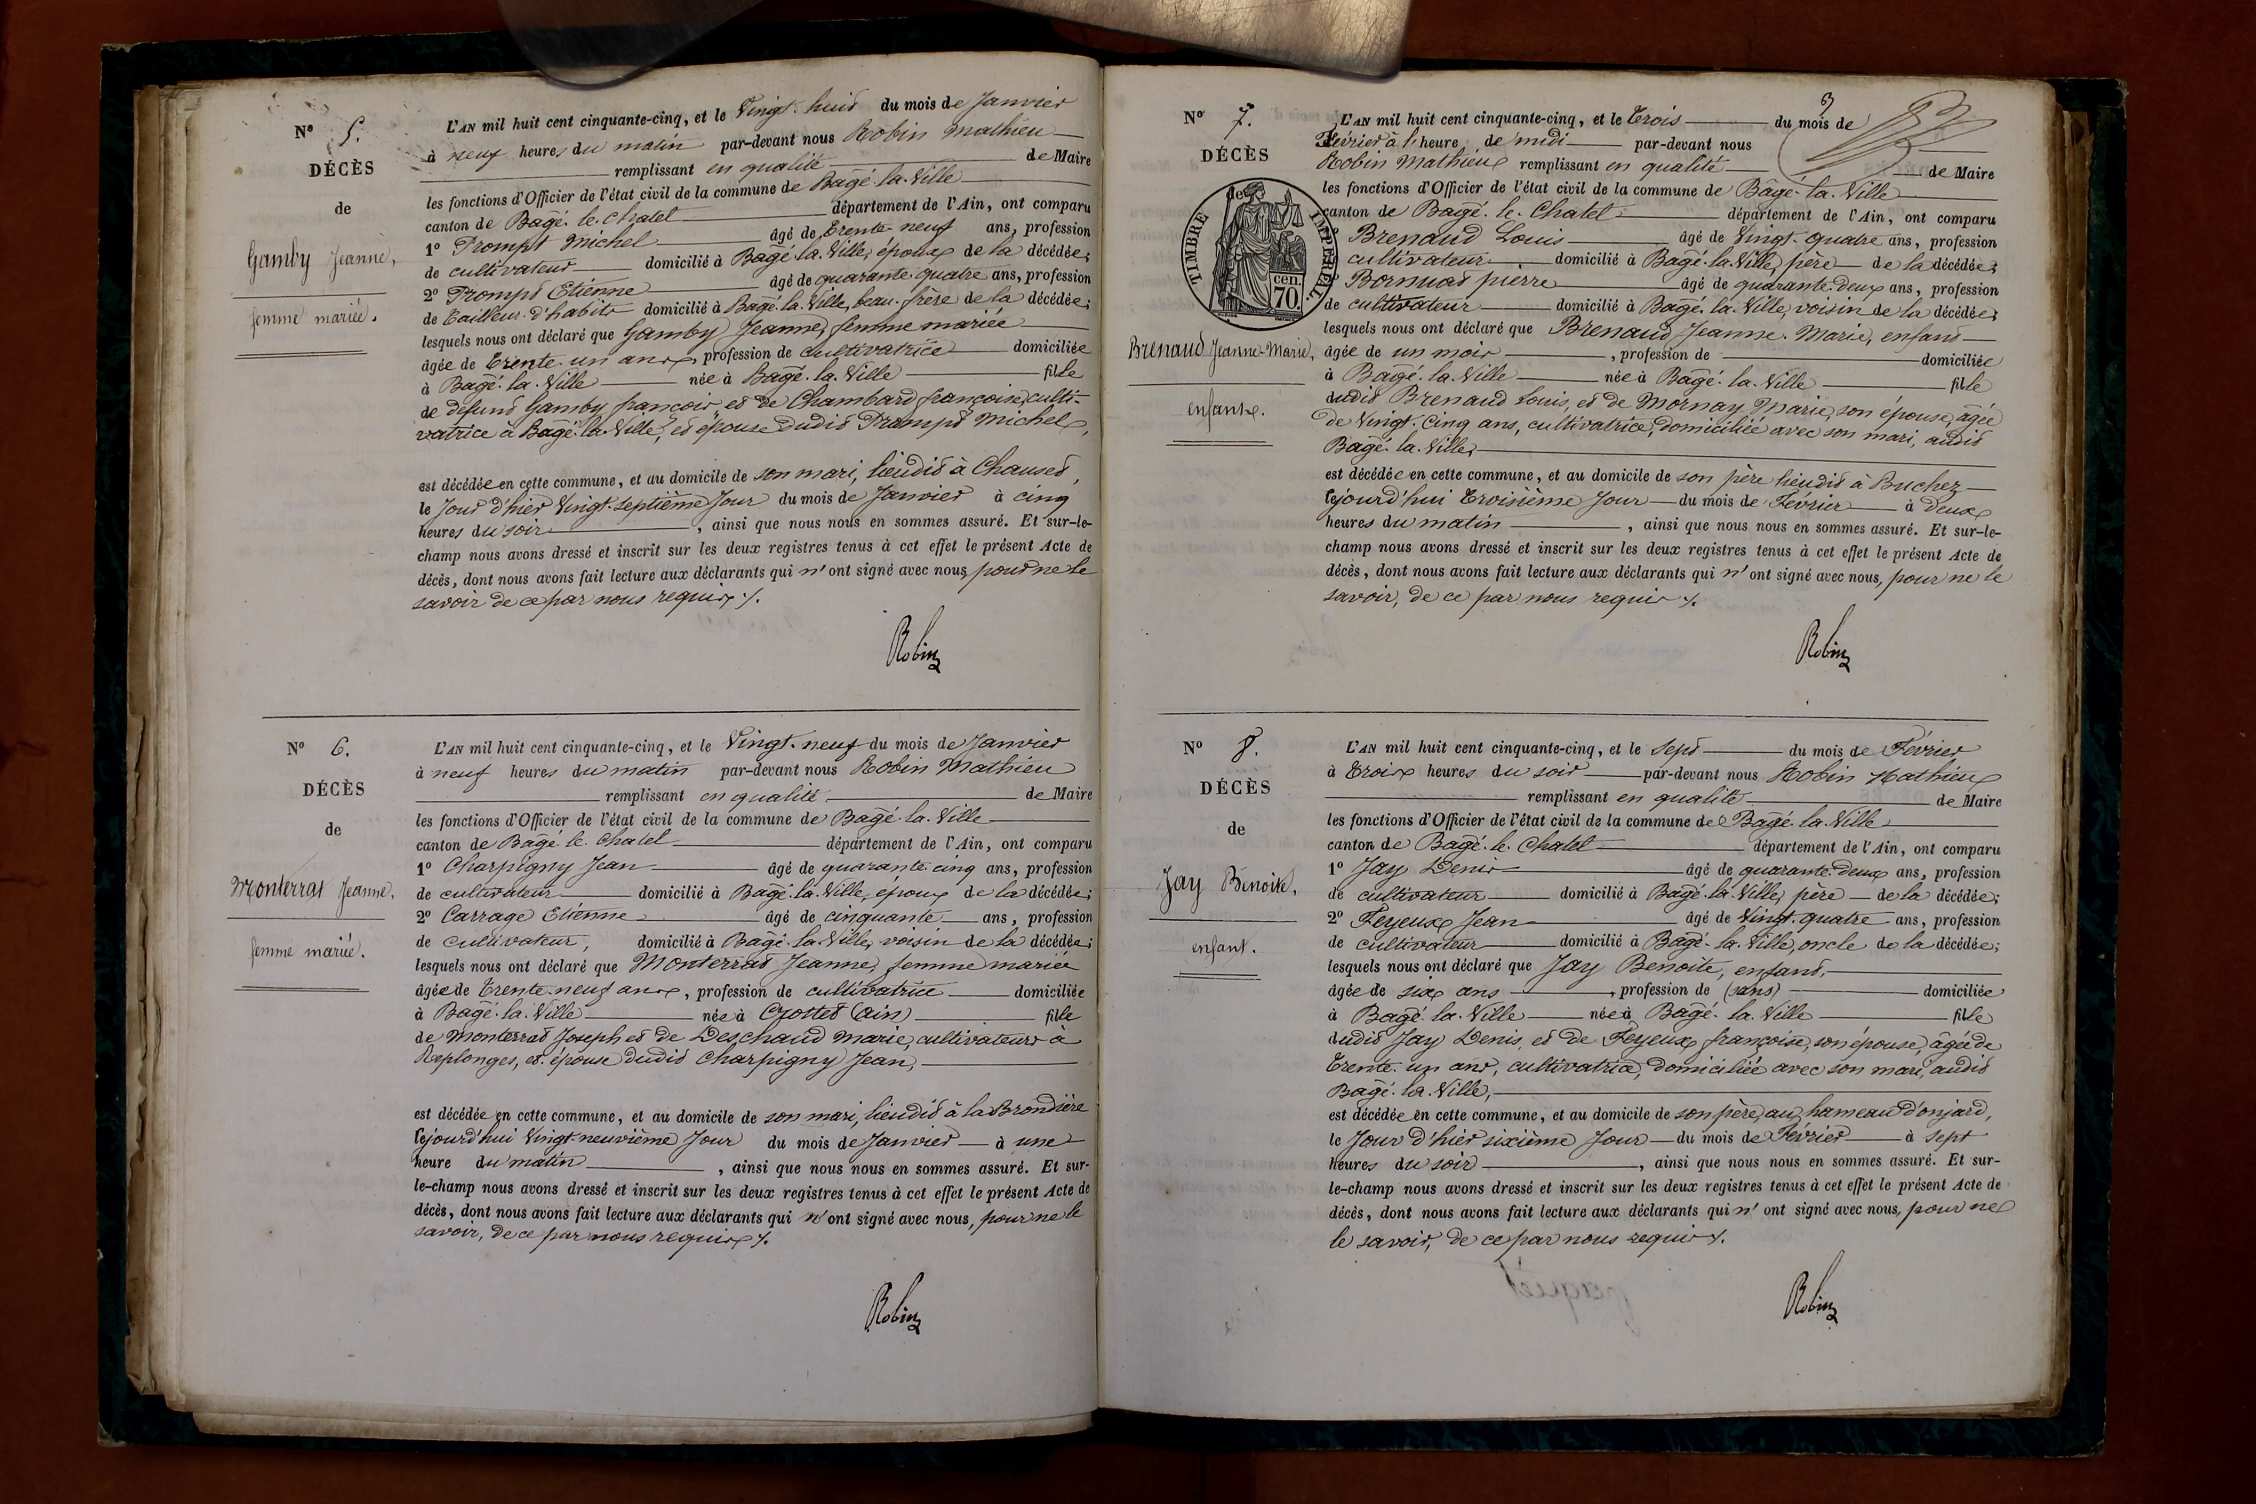 Nº 5.
DÉCÈS
de
Gamby Jeanne,
femme mariée.
L'AN mil huit cent cinquante-cinq, et le Vingt-huit du mois de Janvier
à neuf heures du matin par-devant nous Robin Mathieu
remplissant en qualité de Maire
les fonctions d'Officier de l'état civil de la commune de Bagé-la-Ville
canton de Bagé-le-Chatel département de l'Ain, ont comparu
1º Prompt Michel âgé de trente-neuf ans, profession
de cultivateur domicilié à Bagé-la-Ville, époux de la décédée;
2º Prompt Etienne âgé de quarante-quatre ans, profession
de tailleur d'habits domicilié à Bagé-la-Ville, beau-frère de la décédée;
lesquels nous ont déclaré que Gamby Jeanne, femme mariée
âgée de trente-un ans, profession de cultivatrice domiciliée
à Bagé-la-Ville née à Bagé-la-Ville fille
de defunt Gamby françois, et de Chambard françoise, culti-
vatrice à Bagé-la-Ville, et épouse dudit Prompt Michel,
est décédée en cette commune, et au domicile de son mari, lieudit à Chauset,
le Jour d'hier Vingt-septième Jour du mois de Janvier à cinq
heures du soir, ainsi que nous nous en sommes assuré. Et sur-le-
champ nous avons dressé et inscrit sur les deux registres tenus à cet effet le présent Acte de
décès, dont nous avons fait lecture aux déclarants qui n'ont signé avec nous, pour ne le
savoir de ce par nous requis ./.
Robin
Nº 6.
DÉCÈS
de
Monterrat Jeanne,
femme mariée.
L'AN mil huit cent cinquante-cinq, et le Vingt-neuf du mois de Janvier
à neuf heures du matin par-devant nous Robin Mathieu
remplissant en qualité de Maire
les fonctions d'Officier de l'état civil de la commune de Bagé-la-Ville
canton de Bagé-le-Chatel département de l'Ain, ont comparu
1º Charpigny Jean âgé de quarante-cinq ans, profession
de cultivateur domicilié à Bagé-la-Ville, époux de la décédée;
2º Carrage Etienne âgé de cinquante ans, profession
de cultivateur, domicilié à Bagé-la-Ville, voisin de la décédée;
lesquels nous ont déclaré que Monterrat Jeanne, femme mariée
âgée de trente-neuf ans, profession de cultivatrice domiciliée
à Bagé-la-Ville née à Crottet (Ain) fille
de Monterrat Joseph et de Deschaud Marie, cultivateurs à
Replonges, et épouse dudit Charpigny Jean,
est décédée en cette commune, et au domicile de son mari, lieudit à la Brondière
cejourd'hui Vingt-neuvième Jour du mois de Janvier à une
heure du matin, ainsi que nous nous en sommes assuré. Et sur-
le-champ nous avons dressé et inscrit sur les deux registres tenus à cet effet le présent Acte de
décès, dont nous avons fait lecture aux déclarants qui n'ont signé avec nous, pour ne le
savoir, de ce par nous requis ./.
Robin
3
Nº 7.
DÉCÈS
de
TIMBRE IMPÉRIAL
70 cen.
Brenaud Jeanne-Marie,
enfant.
L'AN mil huit cent cinquante-cinq, et le trois du mois de
Février à l'heure de midi par-devant nous
Robin Mathieu remplissant en qualité de Maire
les fonctions d'Officier de l'état civil de la commune de Bagé-la-Ville
canton de Bagé-le-Chatel département de l'Ain, ont comparu
1º Brenaud Louis âgé de Vingt-quatre ans, profession
cultivateur domicilié à Bagé-la-Ville, père de la décédée;
Bornuat pierre âgé de quarante-deux ans, profession
de cultivateur domicilié à Bagé-la-Ville, voisin de la décédée;
lesquels nous ont déclaré que Brenaud Jeanne-Marie, enfant
âgée de un mois, profession de domiciliée
à Bagé-la-Ville née à Bagé-la-Ville fille
dudit Brenaud Louis, et de Mornay Marie, son épouse, agée
de Vingt-cinq ans, cultivatrice, domiciliée avec son mari, audit
Bagé-la-Ville,
est décédée en cette commune, et au domicile de son père lieudit à Buchez
cejourd'hui troisième Jour du mois de Février à deux
heures du matin, ainsi que nous nous en sommes assuré. Et sur-le-
champ nous avons dressé et inscrit sur les deux registres tenus à cet effet le présent Acte de
décès, dont nous avons fait lecture aux déclarants qui n'ont signé avec nous, pour ne le
savoir, de ce par nous requis ./.
Robin
Nº 8.
DÉCÈS
de
Jay Benoite,
enfant.
L'AN mil huit cent cinquante-cinq, et le sept du mois de Février
à trois heures du soir par-devant nous Robin Mathieu
remplissant en qualité de Maire
les fonctions d'Officier de l'état civil de la commune de Bagé-la-Ville
canton de Bagé-le-Chatel département de l'Ain, ont comparu
1º Jay Denis âgé de quarante-deux ans, profession
de cultivateur domicilié à Bagé-la-Ville, père de la décédée;
2º Feyeux Jean âgé de Vingt-quatre ans, profession
de cultivateur domicilié à Bagé-la-Ville, oncle de la décédée;
lesquels nous ont déclaré que Jay Benoite, enfant,
âgée de six ans, profession de (sans) domiciliée
à Bagé-la-Ville née à Bagé-la-Ville fille
dudit Jay Denis, et de Feyeux françoise, son épouse, âgée de
trente-un ans, cultivatrice, domiciliée avec son mari, audit
Bagé-la-Ville,
est décédée en cette commune, et au domicile de son père, au hameau d'onjard,
le Jour d'hier sixième Jour du mois de Février à sept
heures du soir, ainsi que nous nous en sommes assuré. Et sur-
le-champ nous avons dressé et inscrit sur les deux registres tenus à cet effet le présent Acte de
décès, dont nous avons fait lecture aux déclarants qui n'ont signé avec nous, pour ne
le savoir, de ce par nous requis ./.
Robin